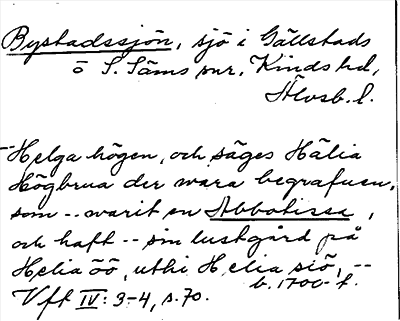 Bystadssjön, sjö i Gällstads
o S. Säms snr, Kinds hd,
Älvsb. l.
--Helga högen, och säges Hälia
Högbrua der wara begrafuen,
som -- warit en Abbotissa,
och haft -- sin lustgård på
Helia öö, uthi Helia siö, --
b. 1700-t.
Vft IV: 3-4, s. 70.